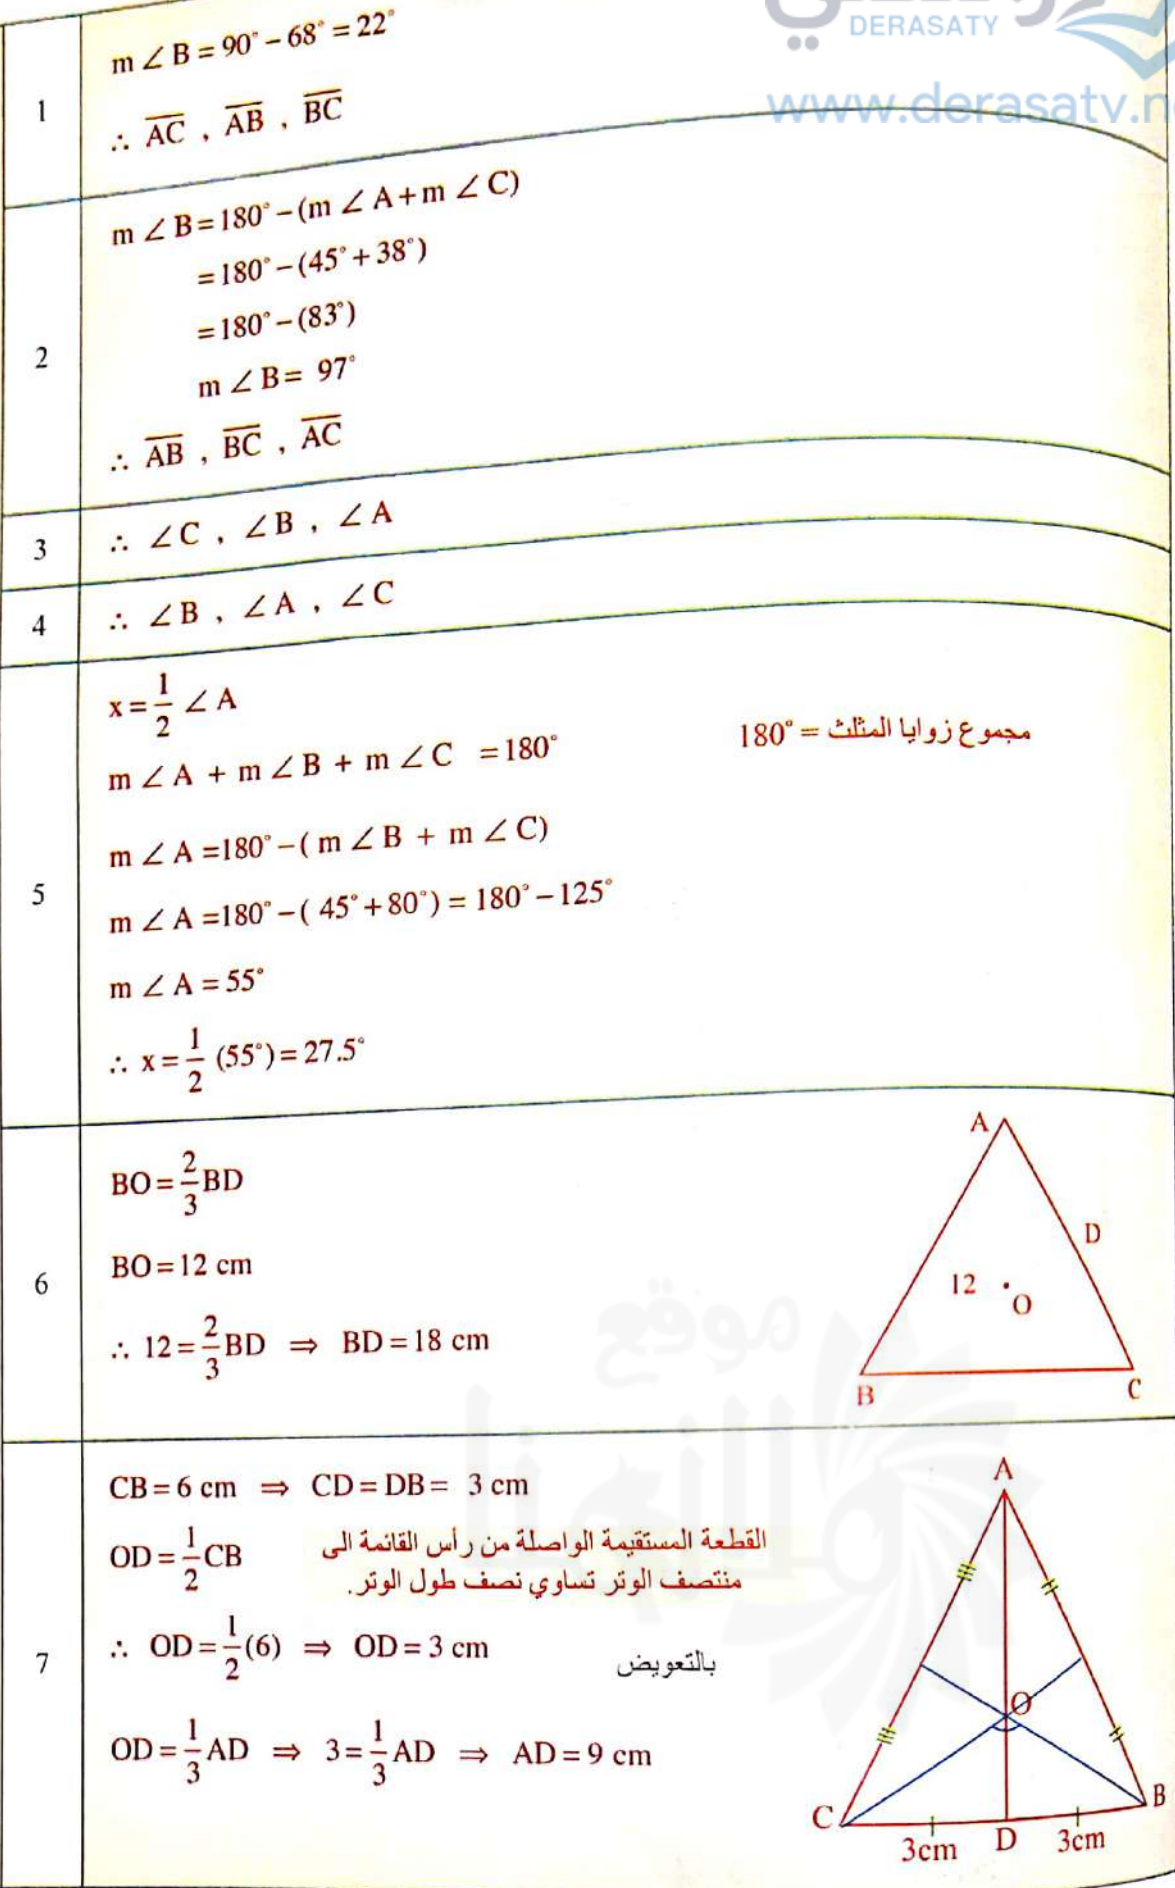 DERASATY
www.derasaty.n
1
m ∠ B = 90° − 68° = 22°
∴ A̅C̅ , A̅B̅ , B̅C̅
2
m ∠ B = 180° − (m ∠ A + m ∠ C)
= 180° − (45° + 38°)
= 180° − (83°)
m ∠ B = 97°
∴ A̅B̅ , B̅C̅ , A̅C̅
3
∴ ∠C , ∠B , ∠A
4
∴ ∠B , ∠A , ∠C
5
x = 1/2 ∠ A
m ∠ A + m ∠ B + m ∠ C = 180°
مجموع زوايا المثلث = 180°
m ∠ A = 180° − ( m ∠ B + m ∠ C)
m ∠ A = 180° − ( 45° + 80° ) = 180° − 125°
m ∠ A = 55°
∴ x = 1/2 (55°) = 27.5°
6
BO = 2/3 BD
BO = 12 cm
∴ 12 = 2/3 BD ⇒ BD = 18 cm
A
D
12
O
B
C
7
CB = 6 cm ⇒ CD = DB = 3 cm
OD = 1/2 CB
القطعة المستقيمة الواصلة من رأس القائمة الى
منتصف الوتر تساوي نصف طول الوتر.
∴ OD = 1/2 (6) ⇒ OD = 3 cm
بالتعويض
OD = 1/3 AD ⇒ 3 = 1/3 AD ⇒ AD = 9 cm
A
O
C
D
B
3cm
3cm
موقع